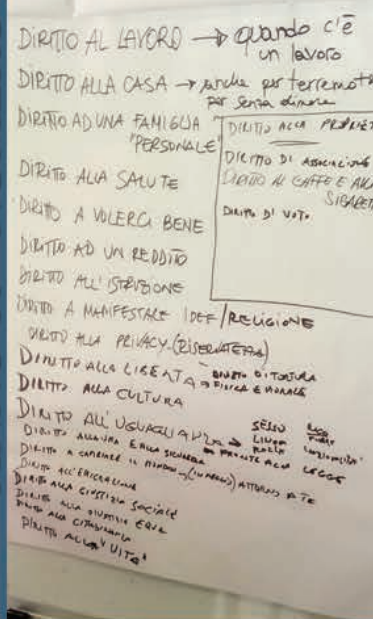 DIRITTO AL LAVORO → quando c'è
un lavoro
DIRITTO ALLA CASA → anche per terremot
per senza dimora
DIRITTO AD UNA FAMIGLIA
"PERSONALE"
DIRITTO ALLA PROPRIET
DIRITTO DI ASSOCIAZIONE
DIRITTO AL CAFFE E ALLA
SIGARET
DIRITTO DI VOTO
DIRITTO ALLA SALUTE
DIRITTO A VOLERCI BENE
DIRITTO AD UN REDDITO
DIRITTO ALL'ISTRUZIONE
DIRITTO A MANIFESTARE IDEE/RELIGIONE
DIRITTO ALLA PRIVACY (RISERVATEZZA)
DIRITTO ALLA LIBERTA → DIVIETO DI TORTURA
FISICA E MORALE
DIRITTO ALLA CULTURA
DIRITTO ALL'UGUAGLIANZA → SESSO
LINGUA
RAZZA
DI FRONTE ALLA LEGGE
DIRITTO ALLA VITA E ALLA SICUREZZA
DIRITTO A CAMBIARE IL MONDO → ATTORNO A TE
DIRITTO ALL'EMIGRAZIONE
DIRITTO ALLA GIUSTIZIA SOCIALE
DIRITTO ALLA GIUSTIZIA EQUA
DIRITTO ALLA CITTADINANZA
DIRITTO ALLA "VITA"